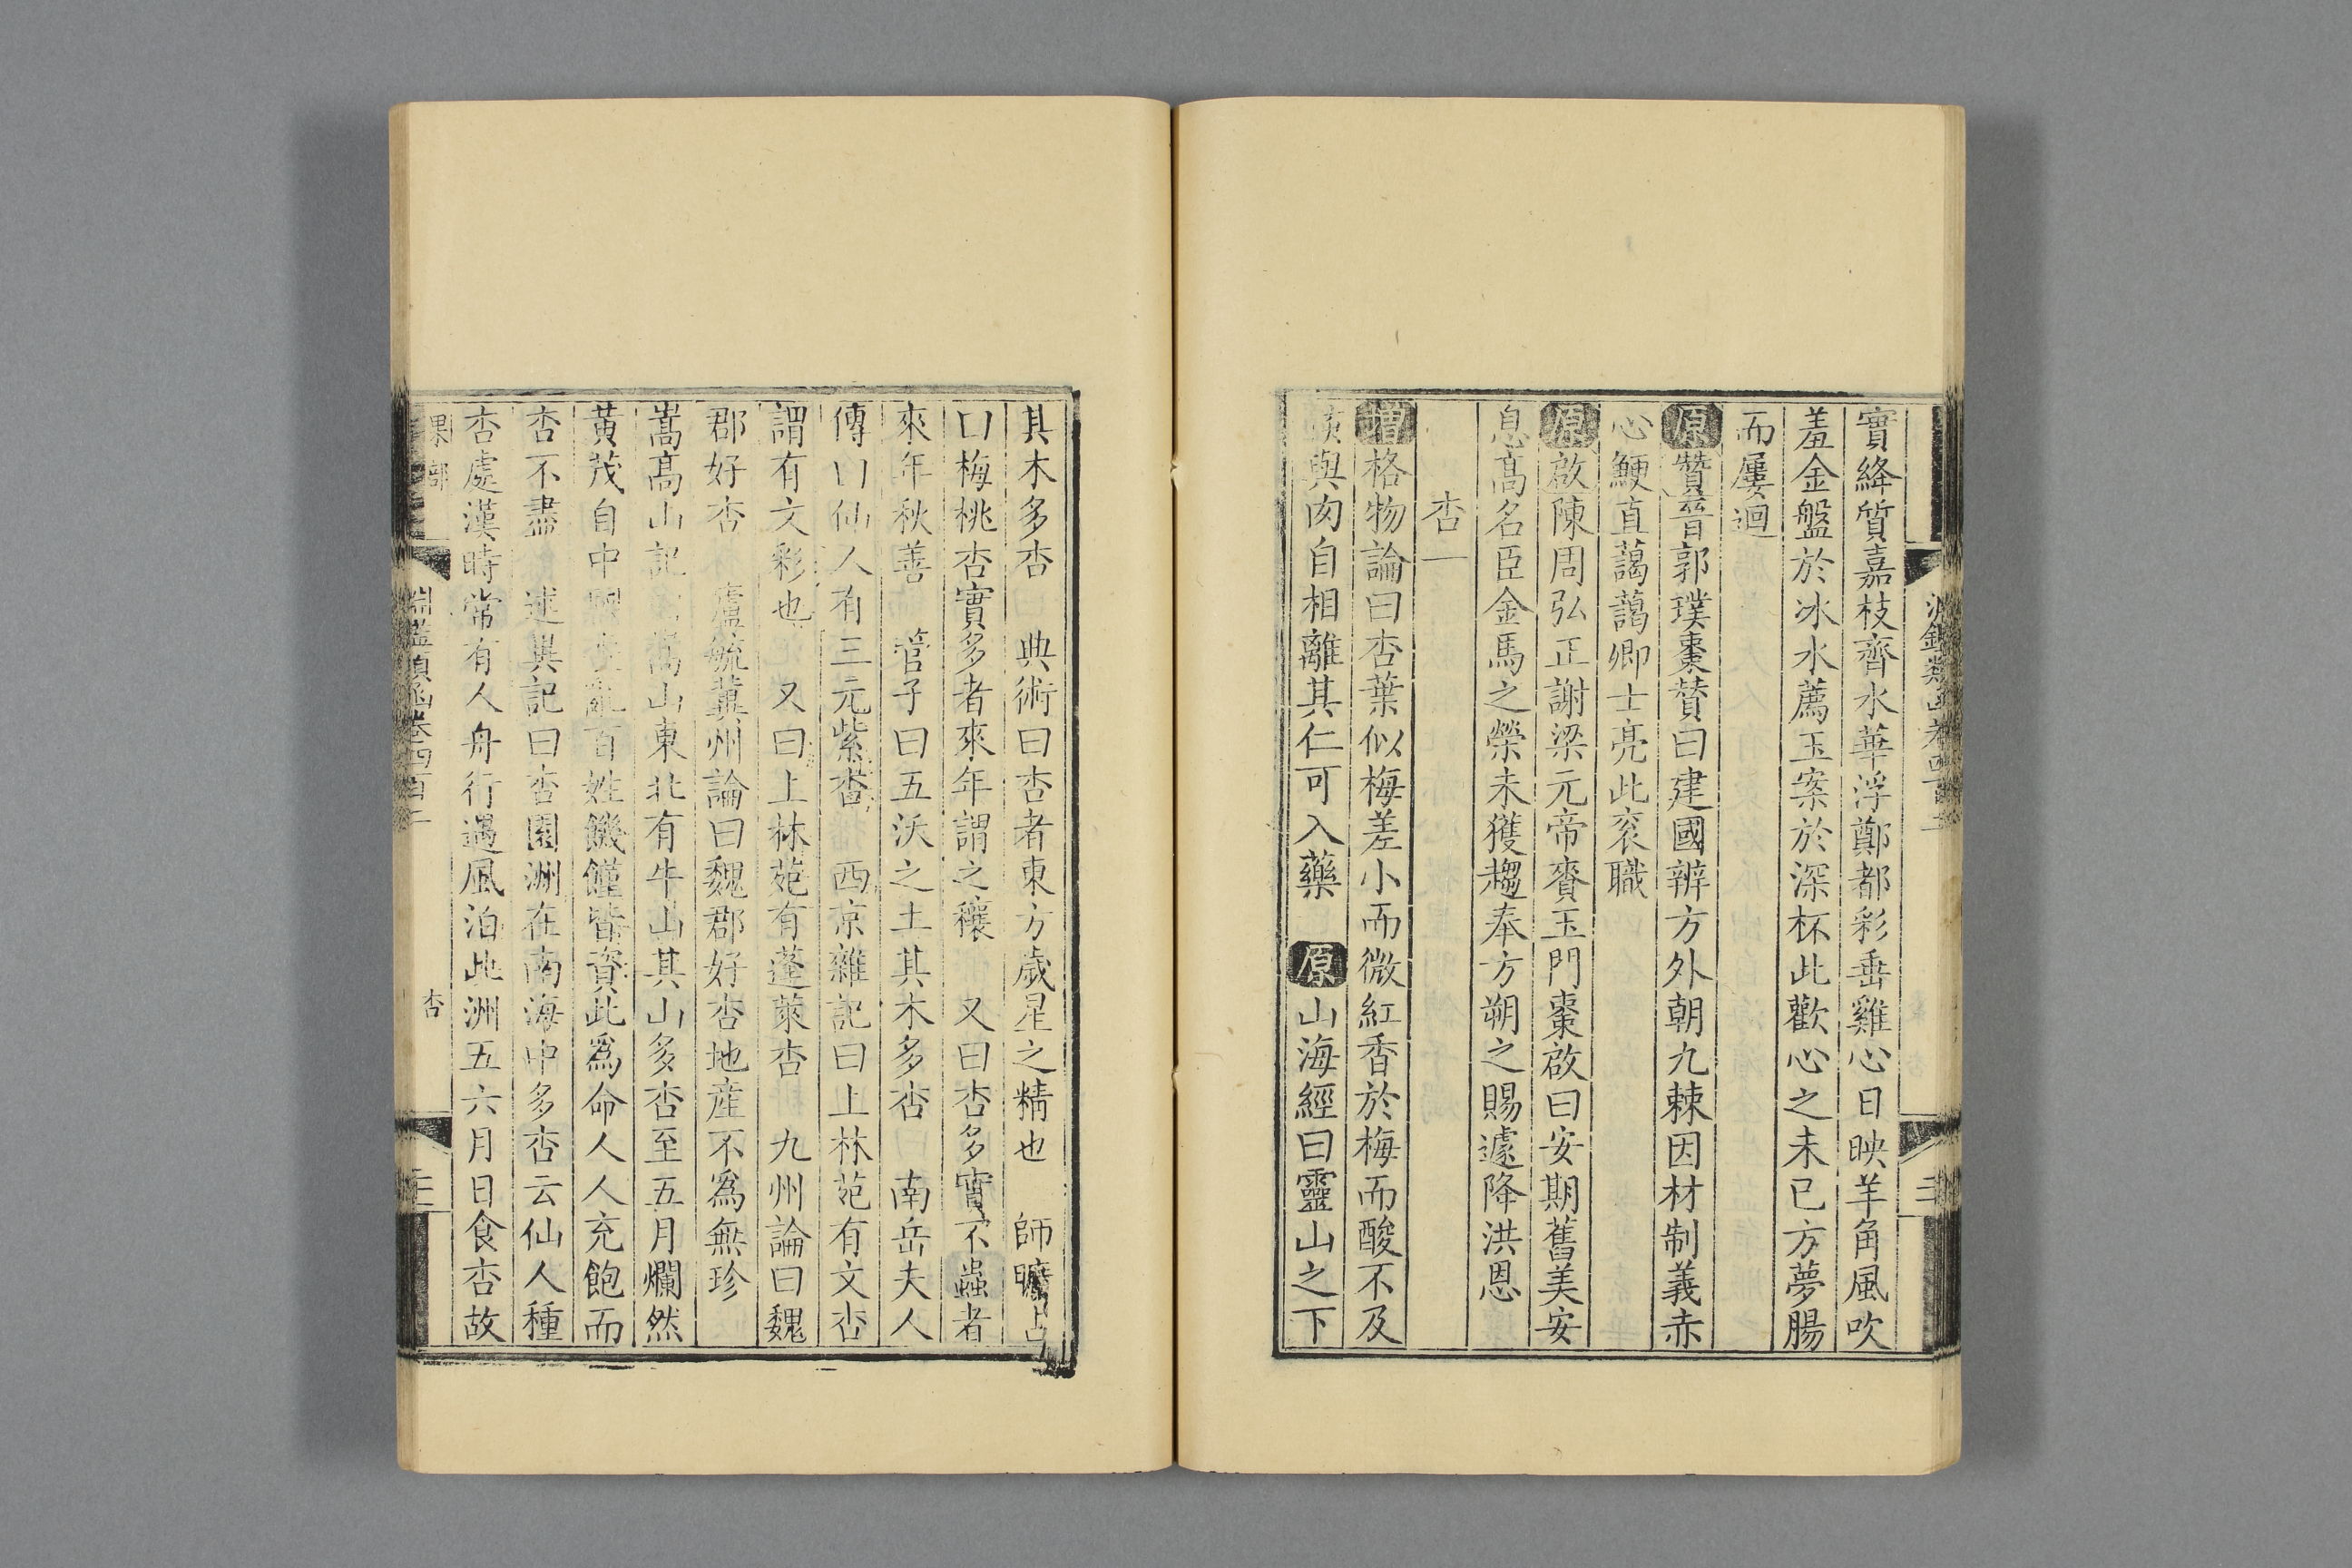 實絳質嘉枝齊水華浮鄭都彩垂雞心日映羊角風吹
羞金盤於冰水薦玉案於深杯此歡心之未已方夢腸
而屢迴
原贊晉郭璞棗贊曰建國辨方外朝九棘因材制義赤
心鯁直藹藹卿士亮此衮職
原啟陳周弘正謝梁元帝賚玉門棗啟曰安期舊美安
息髙名臣金馬之榮未獲趨奉方朔之賜遽降洪恩
杏一
增格物論曰杏葉似梅差小而微紅香於梅而酸不及
核與肉自相離其仁可入藥 原山海經曰靈山之下
其木多杏 典術曰杏者東方歲星之精也 師曠占
曰梅桃杏實多者來年謂之穰 又曰杏多實不蟲者
來年秋善 管子曰五沃之土其木多杏 南岳夫人
傳曰仙人有三元紫杏 西京雜記曰上林苑有文杏
謂有文彩也 又曰上林苑有蓬萊杏 九州論曰魏
郡好杏 盧毓冀州論曰魏郡好杏地産不爲無珍
嵩髙山記曰嵩山東北有牛山其山多杏至五月爛然
黃茂自中國喪亂百姓饑饉皆資此爲命人人充飽而
杏不盡 述異記曰杏園洲在南海中多杏云仙人種
杏處漢時常有人舟行遇風泊此洲五六月日食杏故
果部
淵鑑類函卷四百二
杏